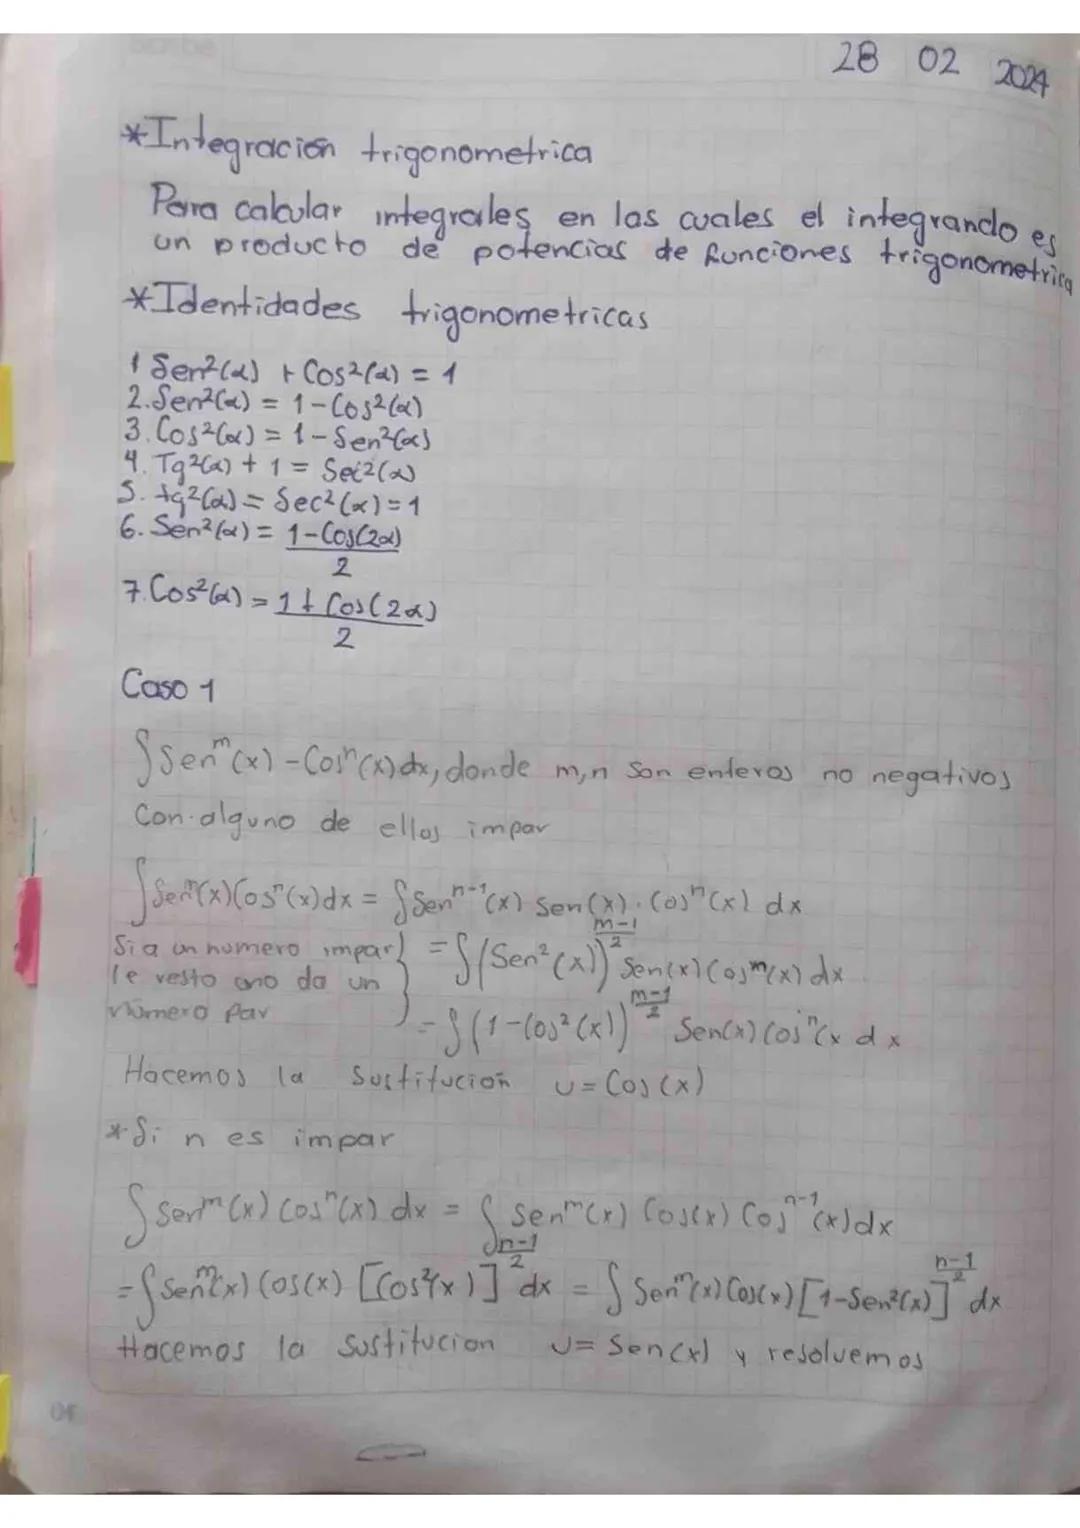 28 02 2024
*Integración trigonometrica
Para calcular integrales en las cuales el integrando es
un producto de potencias de funciones trigonometrica
*Identidades trigonometricas
1 Sen²(α) + Cos²(α) = 1
2. Sen²(α) = 1-Cos²(α)
3. Cos²(α) = 1-Sen²(α)
4. Tg²(α) + 1 = Sec²(α)
5. tg²(α) = Sec²(α) = 1
6. Sen²(α) = 1-Cos(2α)
2
7. Cos²(α) = 1+Cos(2α)
2
Caso 1
∫Senᵐ(x) - Cosⁿ(x) dx, donde m,n son enteros no negativos
Con alguno de ellos impar
∫Senᵐ(x)Cosⁿ(x)dx = ∫Senⁿ⁻¹(x) Sen(x) · Cosⁿ(x) dx
Si a un numero impar } = ∫(Sen²(x))^((m-1)/2) Sen(x) Cosᵐ(x) dx
le resto uno da un
numero par = ∫(1-Cos²(x))^((m-1)/2) Sen(x) Cosⁿ(x dx
Hacemos la Sustitución u = Cos(x)
*Si n es impar
∫Senᵐ(x) Cosⁿ(x) dx = ∫Senᵐ(x) Cos(x) Cosⁿ⁻¹(x) dx
= ∫Senᵐ(x) Cos(x) [Cos²(x)]^((n-1)/2) dx = ∫Senᵐ(x) Cos(x) [1-Sen²(x)]^((n-1)/2) dx
Hacemos la Sustitucion u = Sen(x) y resolvemos